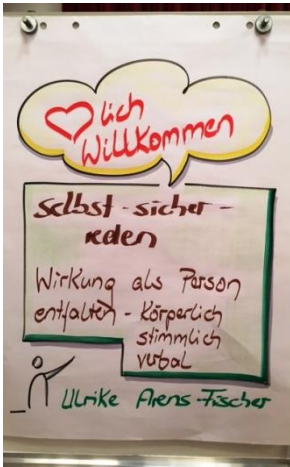 ❤lich
Willkommen
selbst-sicher-
reden
Wirkung als Person
entfalten - Körperlich
stimmlich
verbal
Ulrike Arens-Fischer